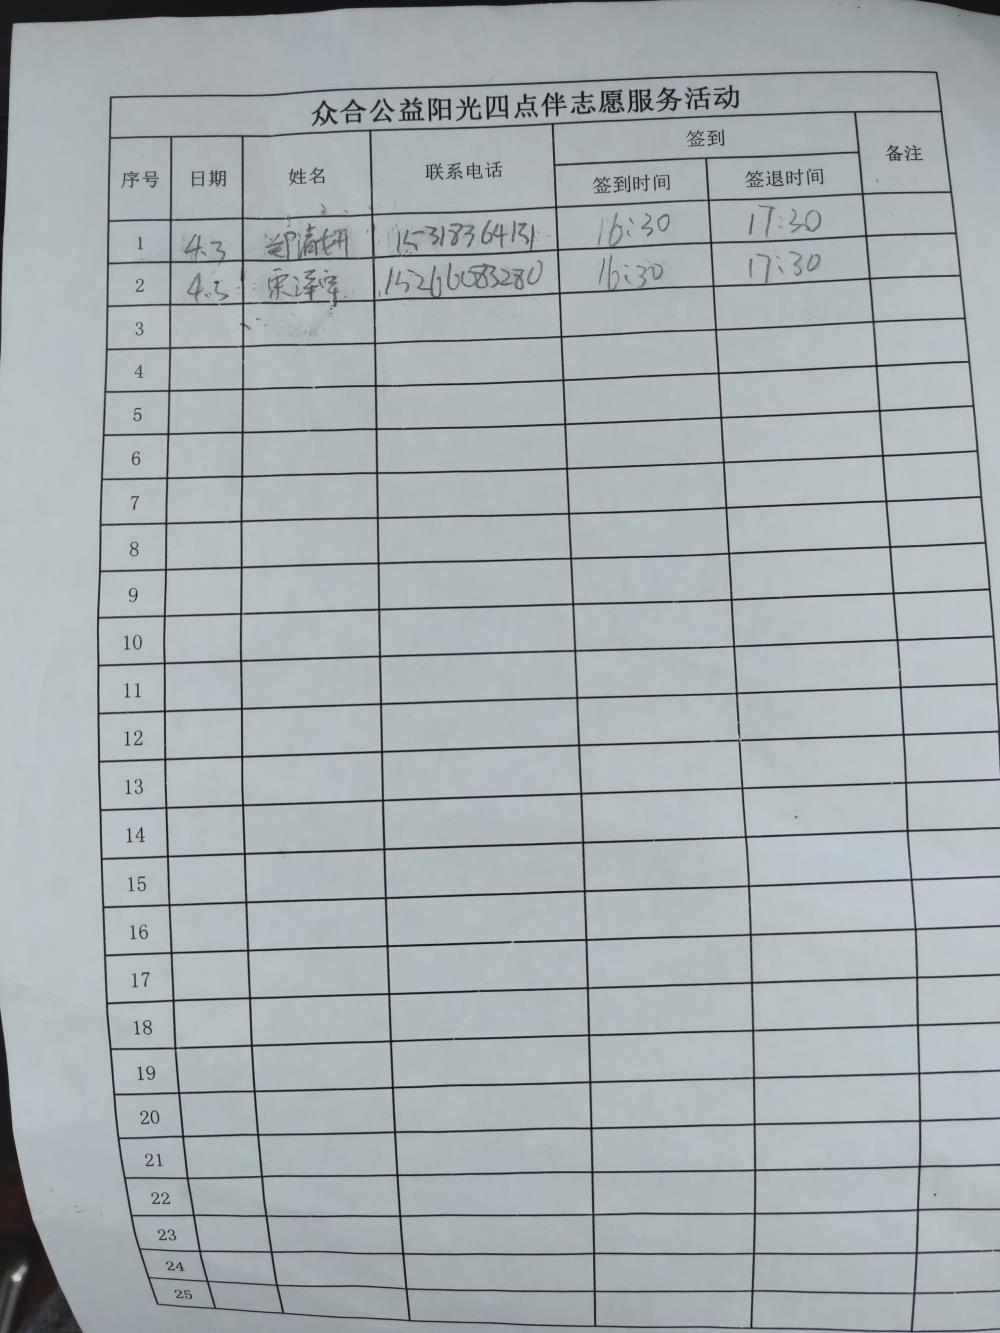 众合公益阳光四点伴志愿服务活动
序号 日期 姓名 联系电话 签到 备注
签到时间 签退时间
1 4.3 15318364131 16:30 17:30
2 4.3 15266083280 16:30 17:30
3
4
5
6
7
8
9
10
11
12
13
14
15
16
17
18
19
20
21
22
23
24
25